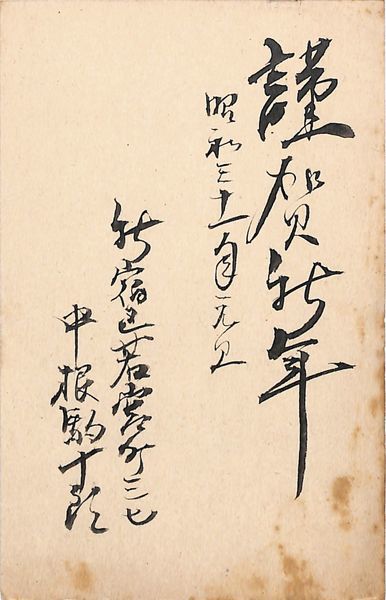 謹賀新年
昭和三十一年元旦
新宿区若宮町三七
中根駒十郎